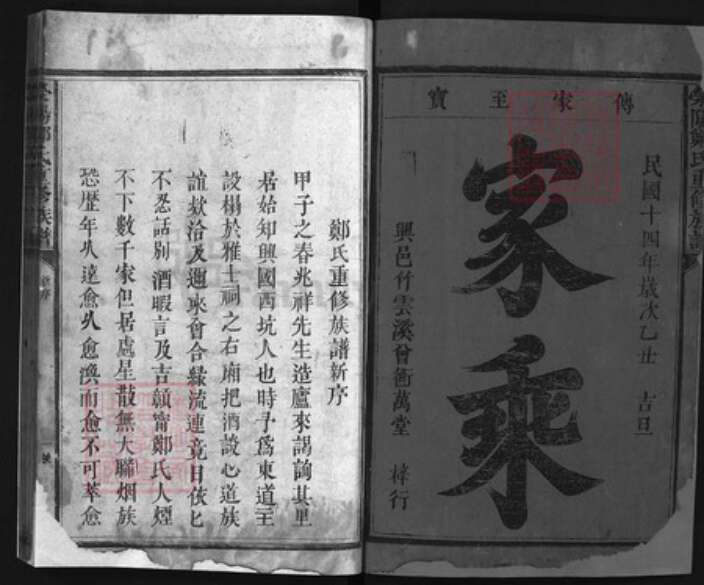 傳家至寶
民國十四年歲次乙丑 吉旦
家乘
興邑竹雲溪曾衛萬堂 梓行
鄭氏重修族譜新序
甲子之春兆祥先生造廬來謁詢其里
居始知興國西坑人也時予為東道主
設榻於雅士祠之右廂把酒談心道族
誼欵洽及邇來會合緣流連竟日依匕
不忍話別酒暇言及吉贛寧鄭氏人煙
不下數千家但居處星散無大聯烟族
恐歷年久遠愈久愈渙而愈不可萃愈